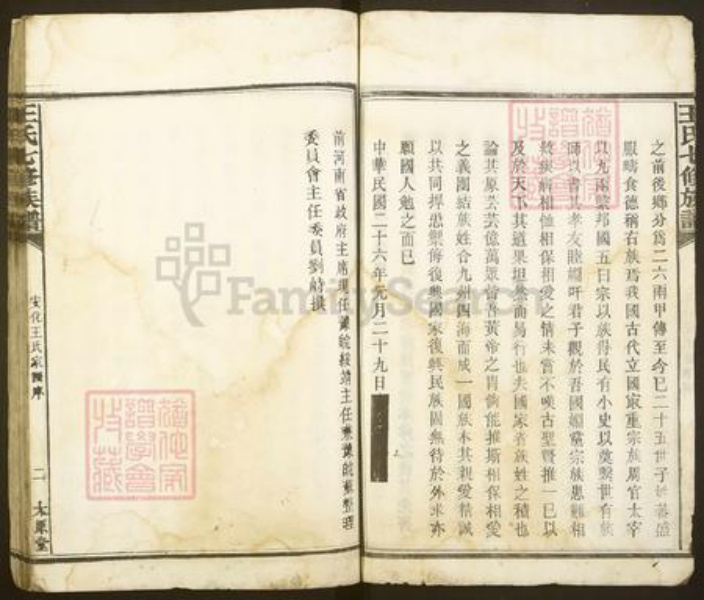 王氏七修族譜
之前後鄉分爲二六兩甲傳至今已二十五世子姓蕃盛
服疇食德稱右族焉我國古代立國最重宗族周官太宰
以九兩繫邦國五曰宗以族得民有小史以奠繫世有族
師以書其孝友睦婣吁君子觀於吾國婣黨宗族患難相
救疾病相恤相保相愛之情未嘗不嘆古聖賢推一已以
及於天下其道果坦然而易行也夫國家者族姓之積也
論其原芸芸億萬眾皆吾黃帝之胄倘能推斯相保相愛
之義團結族姓合九州四海而成一國族本其親愛精誠
以共同捍患禦侮復興國家復興民族固無待於外求亦
願國人勉之而已
中華民國二十六年元月二十九日
前河南省政府主席現任豫皖綏靖主任兼豫皖蘇整理
委員會主任委員劉峙撰
王氏七修族譜
安化王氏家譜序
二
太原堂
FamilySearch